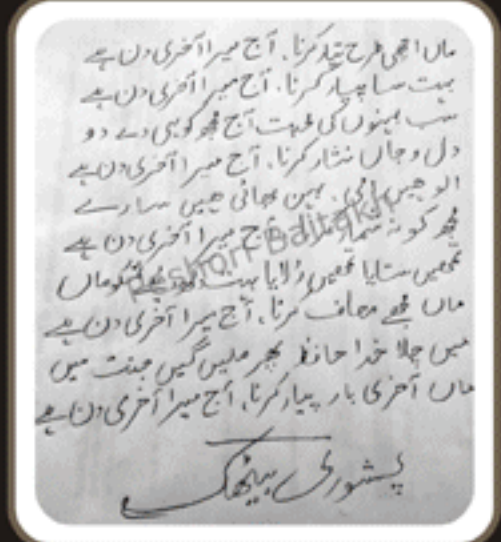 ماں اچھی طرح تیار کرنا، آج میرا آخری دن ہے
بہت سا پیار کرنا، آج میرا آخری دن ہے
سب بہنوں کی محبت آج مجھ کو ہی دے دو
دل و جاں نثار کرنا، آج میرا آخری دن ہے
ابو جیں امی، بہن بھائی جیں سارے
مجھ کو نہ آج میرا آخری دن ہے
تمہیں ستایا تمہیں رُلایا بہت ماں
ماں مجھے معاف کرنا، آج میرا آخری دن ہے
میں چلا خدا حافظ پھر ملیں گیں جنت میں
ماں آخری بار پیار کرنا، آج میرا آخری دن ہے
پشوری بیٹھک
Peshori Baithak